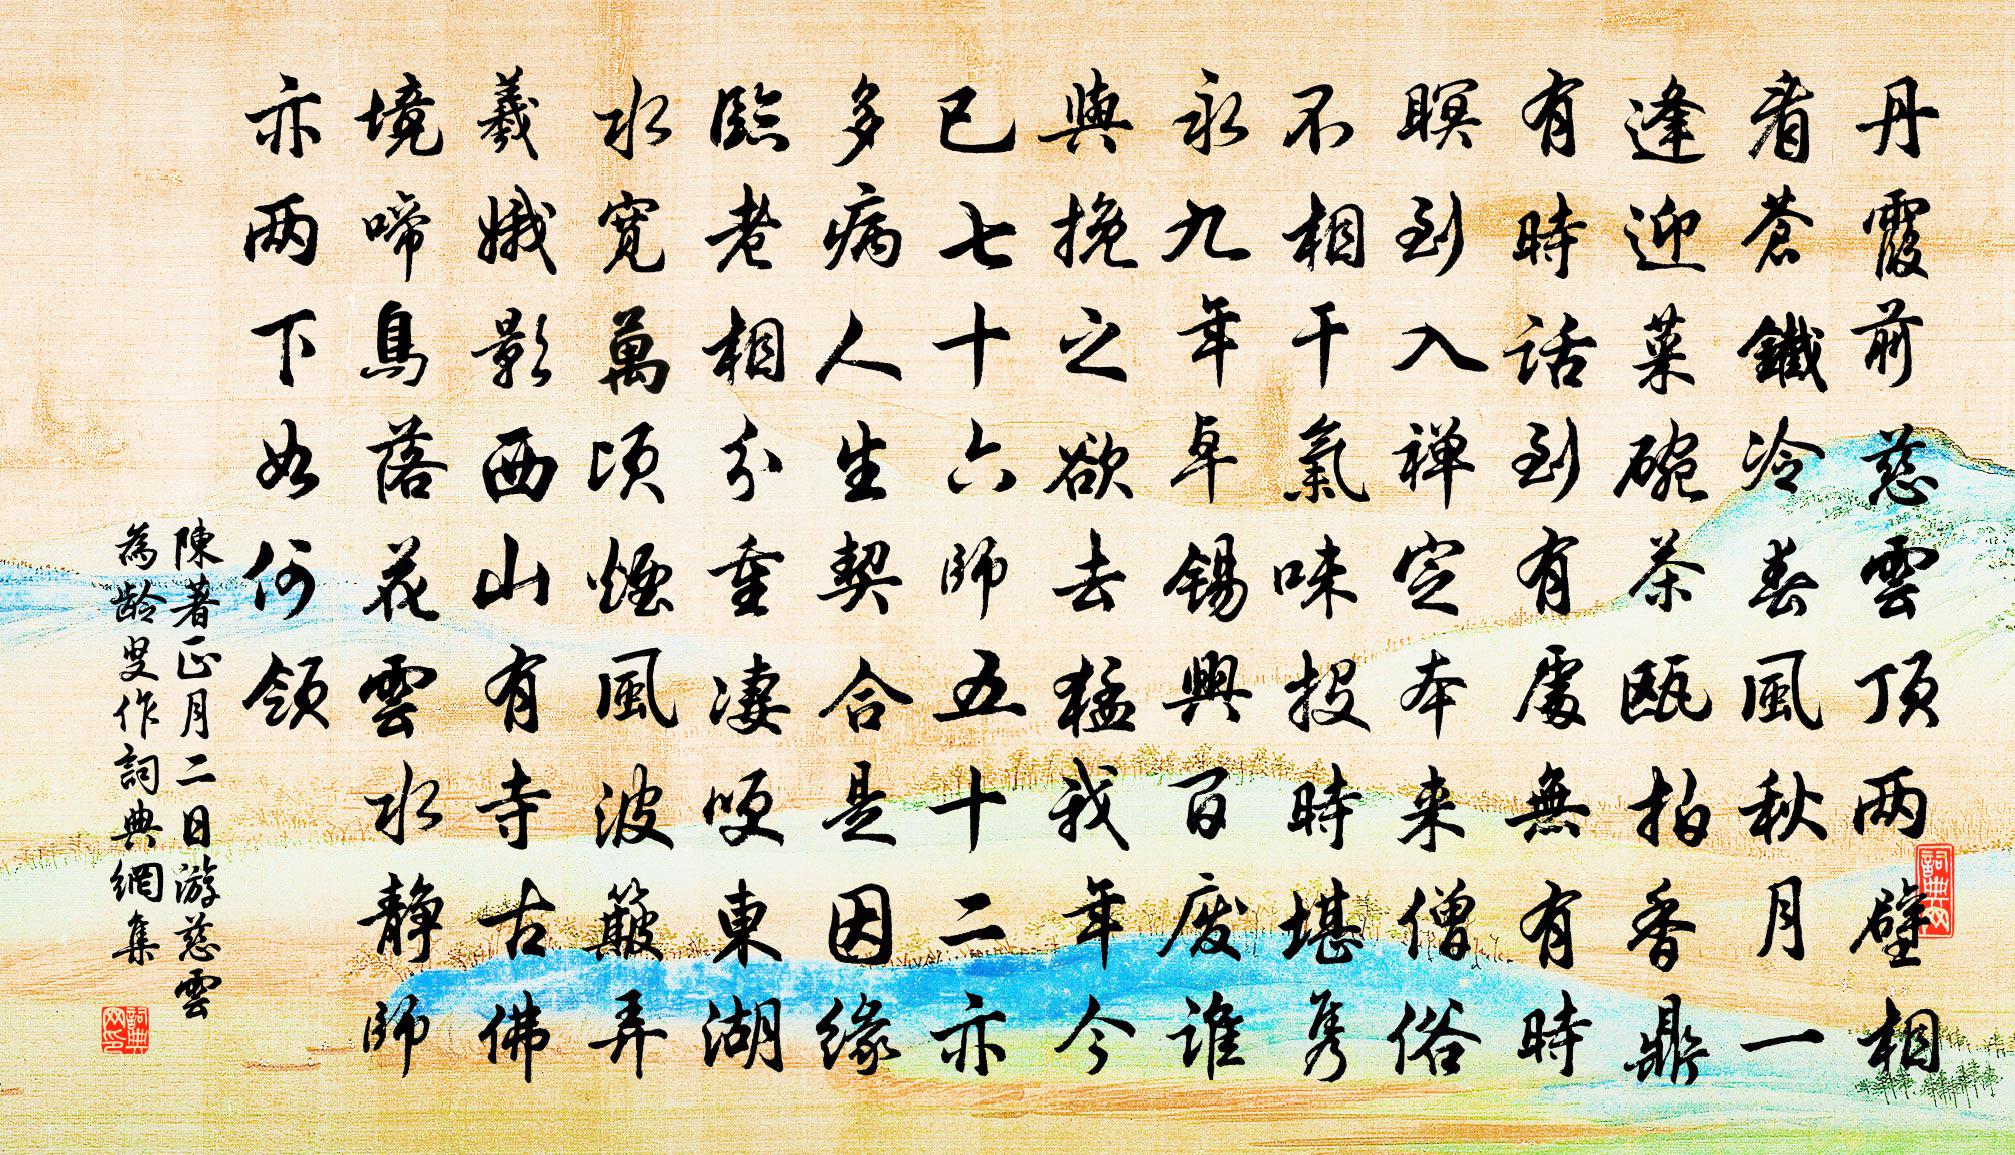 丹霞前慈雲頂两壁相
看蒼鐵冷春風秋月一
逢迎菓碗茶甌拍香鼎
有時話到有處無有時
瞑到入禅定本来僧俗
不相干氣味投時堪隽
永九年卓錫興百废誰
與挽之欲去猛我年今
已七十六師五十二亦
多病人生契合是因缘
臨老相分重凄哽東湖
水寛萬頃煙風波簸弄
羲娥影西山有寺古佛
境啼鳥落花雲水静師
亦两下如何領
陳著正月二日游慈雲
為龄叟作詞典網集
詞典网
詞典网印